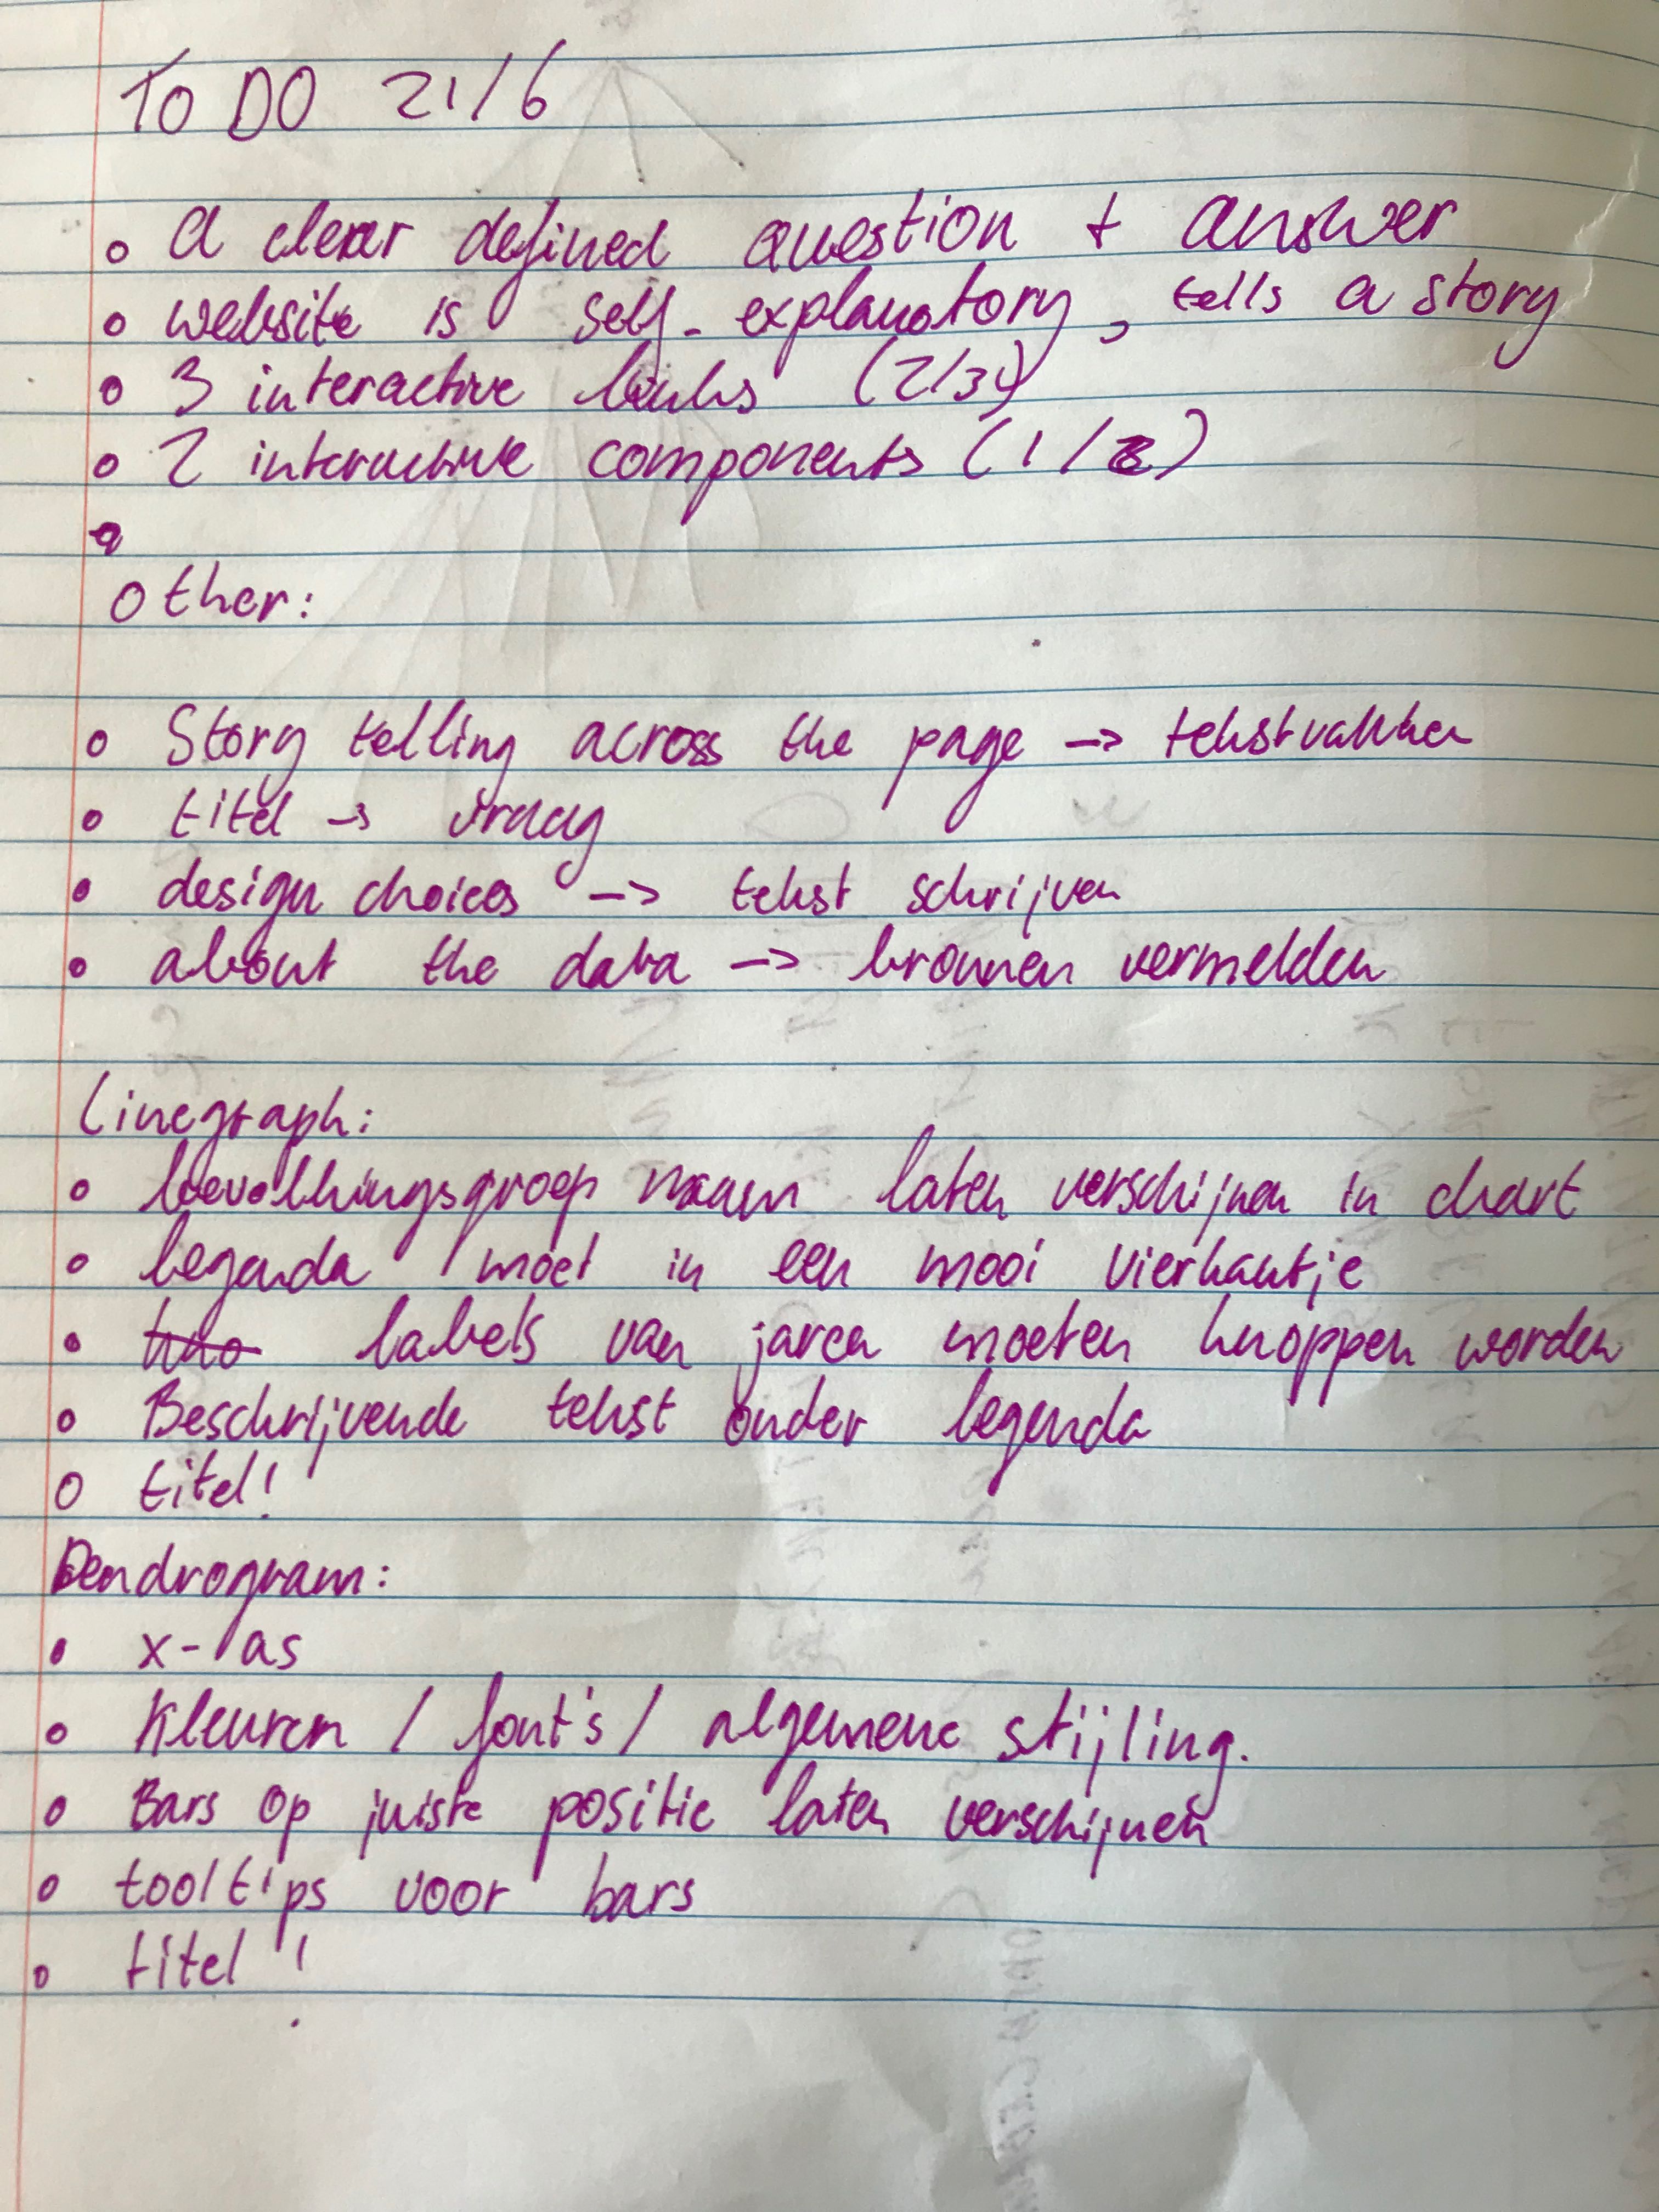 TO DO 21/6
o a clear defined question + answer
o website is self-explanatory, tells a story
o 3 interactive links (2/3)
o 2 interactive components (1/2)
Other:
o Story telling across the page -> tekstvakken
o titel -> vraag
o design choices -> tekst schrijven
o about the data -> bronnen vermelden
Linegraph:
o bevolkingsgroep naam laten verschijnen in chart
o legenda moet in een mooi vierkantje
o labels van jaren moeten knoppen worden
o Beschrijvende tekst onder legenda
o titel!
Dendrogram:
o x-as
o Kleuren / font's / algemene stijling.
o Bars op juiste positie laten verschijnen
o tooltips voor bars
o titel!